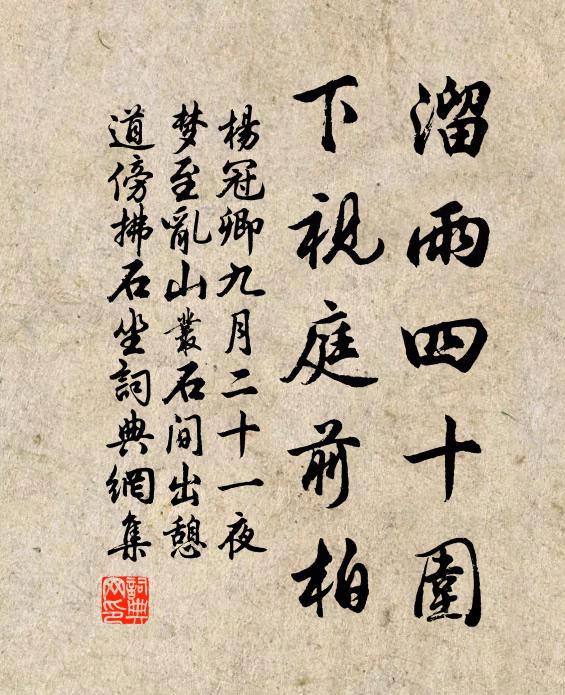 溜雨四十圍
下視庭前柏
楊冠卿九月二十一夜
梦至亂山叢石间出憩
道傍拂石坐詞典網集
詞典
网印